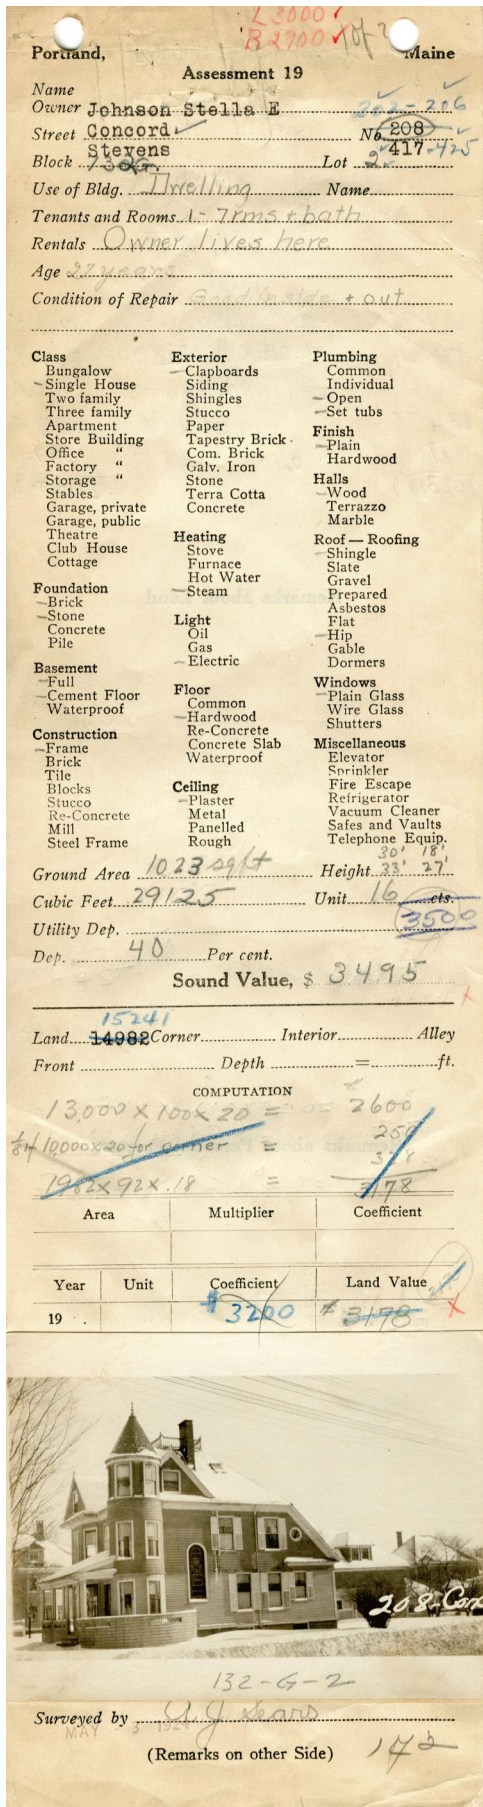 L 3000 ✓
B 2900 ✓ 1 of 2
Portland, Maine
Assessment 19
Name
Owner Johnson Stella E 202-206
Street Concord No 208
Stevens 417-425
Block 132G. Lot 2
Use of Bldg. Dwelling Name
Tenants and Rooms 1- 7rms + bath
Rentals Owner lives here
Age 27 years
Condition of Repair Good inside + out
Class
Bungalow
Single House
Two family
Three family
Apartment
Store Building
Office "
Factory "
Storage "
Stables
Garage, private
Garage, public
Theatre
Club House
Cottage
Foundation
Brick
Stone
Concrete
Pile
Basement
Full
Cement Floor
Waterproof
Construction
Frame
Brick
Tile
Blocks
Stucco
Re-Concrete
Mill
Steel Frame
Exterior
Clapboards
Siding
Shingles
Stucco
Paper
Tapestry Brick
Com. Brick
Galv. Iron
Stone
Terra Cotta
Concrete
Heating
Stove
Furnace
Hot Water
Steam
Light
Oil
Gas
Electric
Floor
Common
Hardwood
Re-Concrete
Concrete Slab
Waterproof
Ceiling
Plaster
Metal
Panelled
Rough
Plumbing
Common
Individual
Open
Set tubs
Finish
Plain
Hardwood
Halls
Wood
Terrazzo
Marble
Roof — Roofing
Shingle
Slate
Gravel
Prepared
Asbestos
Flat
Hip
Gable
Dormers
Windows
Plain Glass
Wire Glass
Shutters
Miscellaneous
Elevator
Sprinkler
Fire Escape
Refrigerator
Vacuum Cleaner
Safes and Vaults
Telephone Equip.
30' 18'
Ground Area 1023 sq ft Height 33' 27'
Cubic Feet 29125 Unit 16 cts.
3500
Utility Dep.
Dep. 40 Per cent.
Sound Value, $ 3495
15241
Land 14982 Corner Interior Alley
Front Depth = ft.
COMPUTATION
13,000 x 100 x 20 = 2600
10000x20 for corner = 250
1982 x 92 x .18 = 328
3178
Area Multiplier Coefficient
Year Unit Coefficient Land Value
19 $3200 $3178
208-Con
132-G-2
Surveyed by A J Sears
MAY
(Remarks on other Side) 172